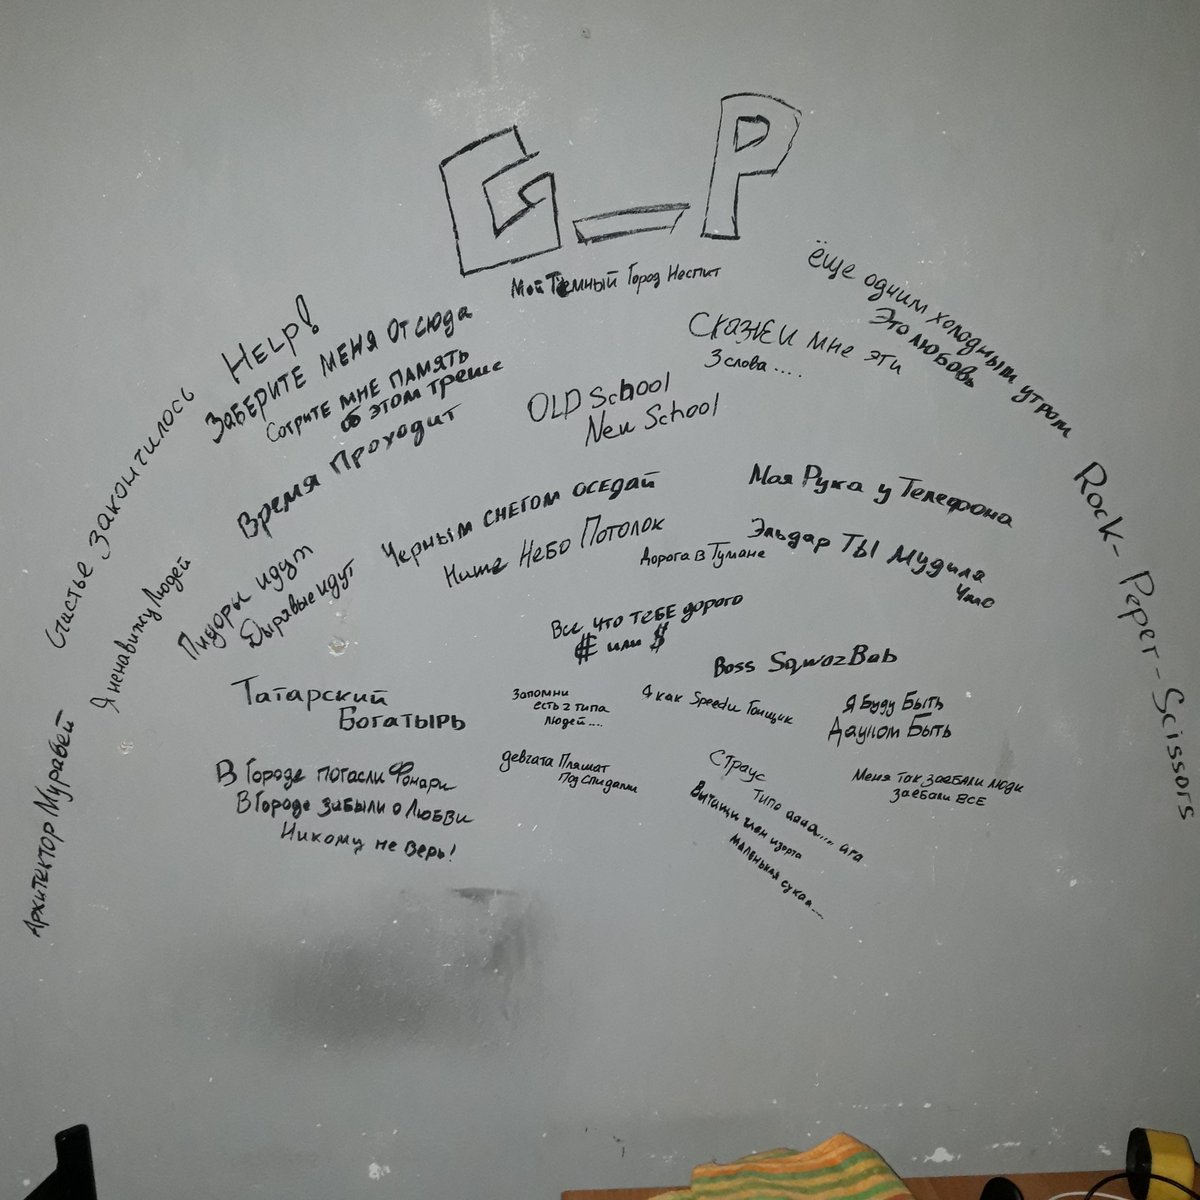 G_P
Мой Тёмный Город Неспит
ёще одним холодным утром
Это любовь
Скажи мне эти
3 слова .....
Help!
Заберите меня отсюда
Сотрите мне память
об этом треше
Время Проходит
OLD School
New School
Счастье закончилось
Я ненавижу Людей
Архитектор Муравей
Пидоры идут
Дырявые идут
Черным снегом оседай
Ниже Небо Потолок
Дорога в Тумане
Моя Рука у Телефона
Эльдар ТЫ Мудила
Чмо
Rock-Peper-Scissors
Все что тебе дорого
или $
Boss SqwozBab
Татарский
Богатырь
Запомни
есть 2 типа
людей....
Я как Speedы Гонщик
Я Буду Быть
Дауном Быть
В Городе погасли Фонари
В Городе забыли о Любви
Никому не верь!
девчата Пляшат
под спидами
Страус
Типо аааа.... ага
Вытащи член изорта
маленькая сукаа....
Меня так заебали люди
заебали все